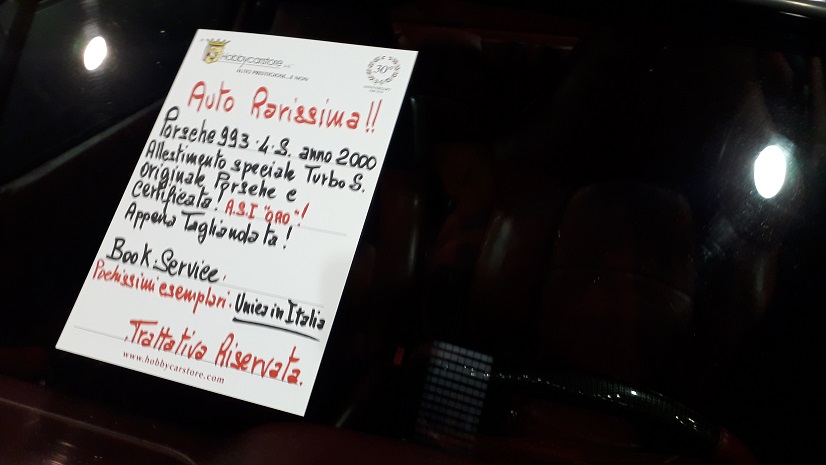 Hobbycarstore
AUTO PRESTIGIOSE.. E NON
30°
Auto Rarissima!!
Porsche 993.4.S. anno 2000
Allestimento speciale Turbo S.
originale Porsche e
certificata! A.S.I "ORO"!
Appena Tagliandata!
Book.Service.
Pochissimi esemplari. Unica in Italia
.Trattativa Riservata.
www.hobbycarstore.com